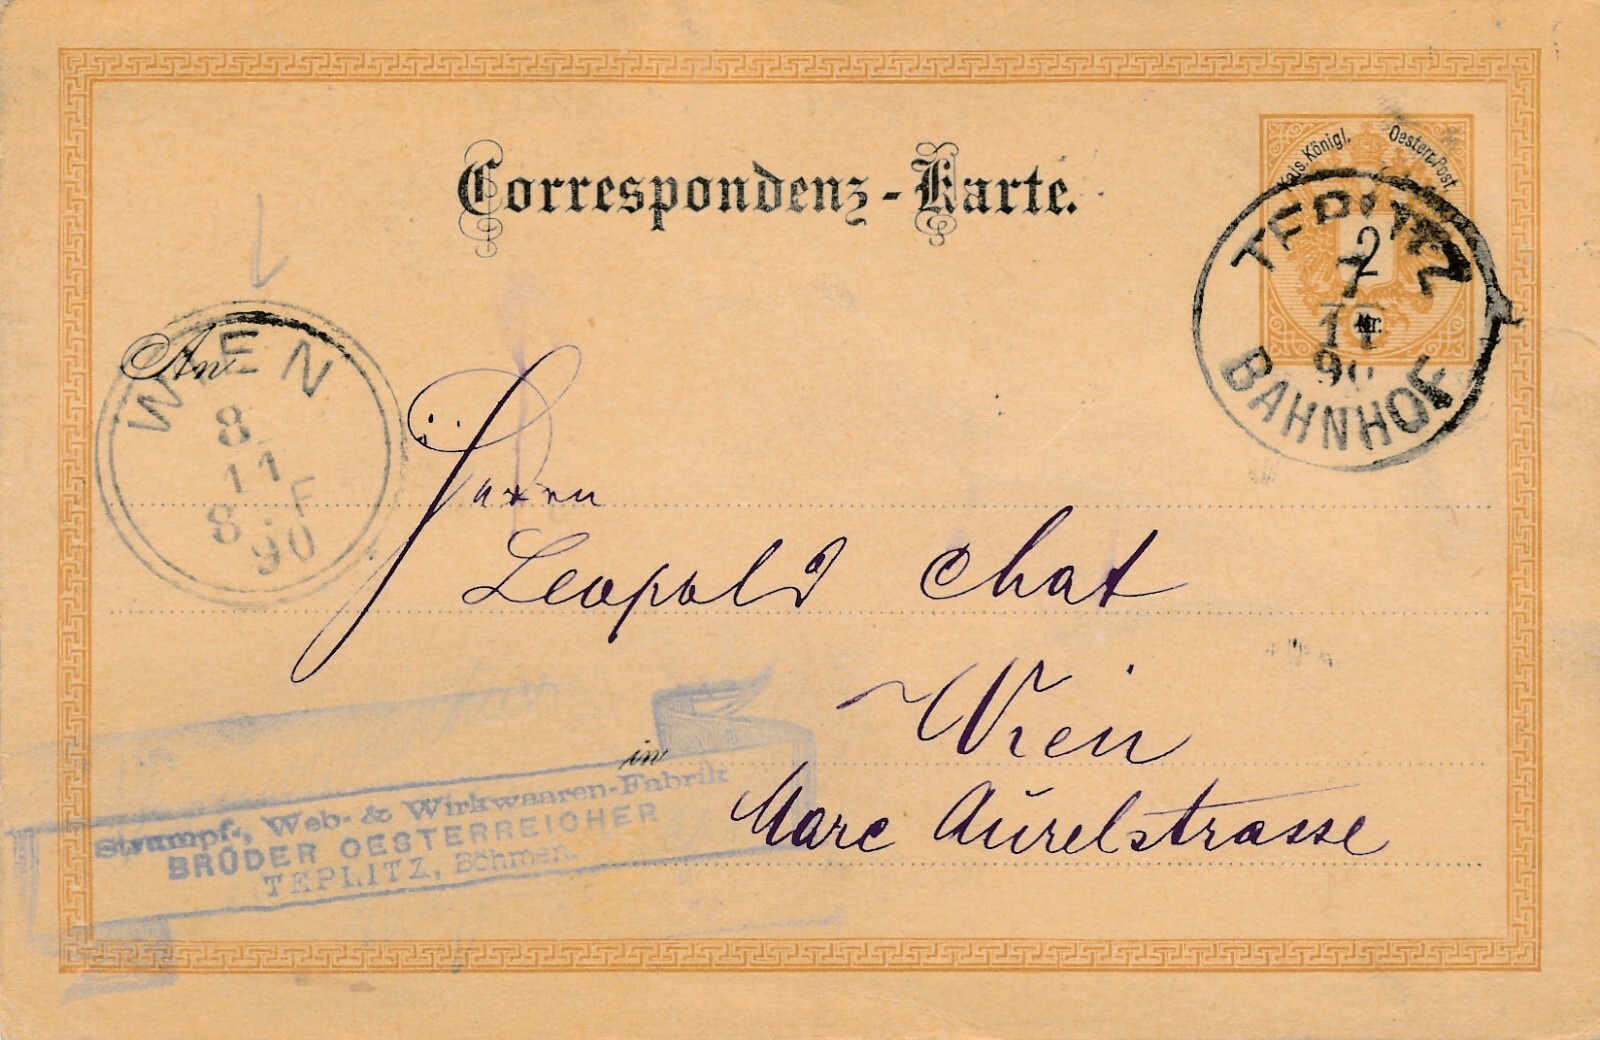 Correspondenz-Karte.
Kais. Königl. Oesterr. Post
TEPLITZ
2
7
11
90
BAHNHOF
WIEN
8
11
8. F
90
An
Herrn
Leopold Chat
in Wien
Marc Aurelstrasse
Strumpf-, Web- & Wirkwaaren-Fabrik
BRÜDER OESTERREICHER
TEPLITZ, Böhmen.